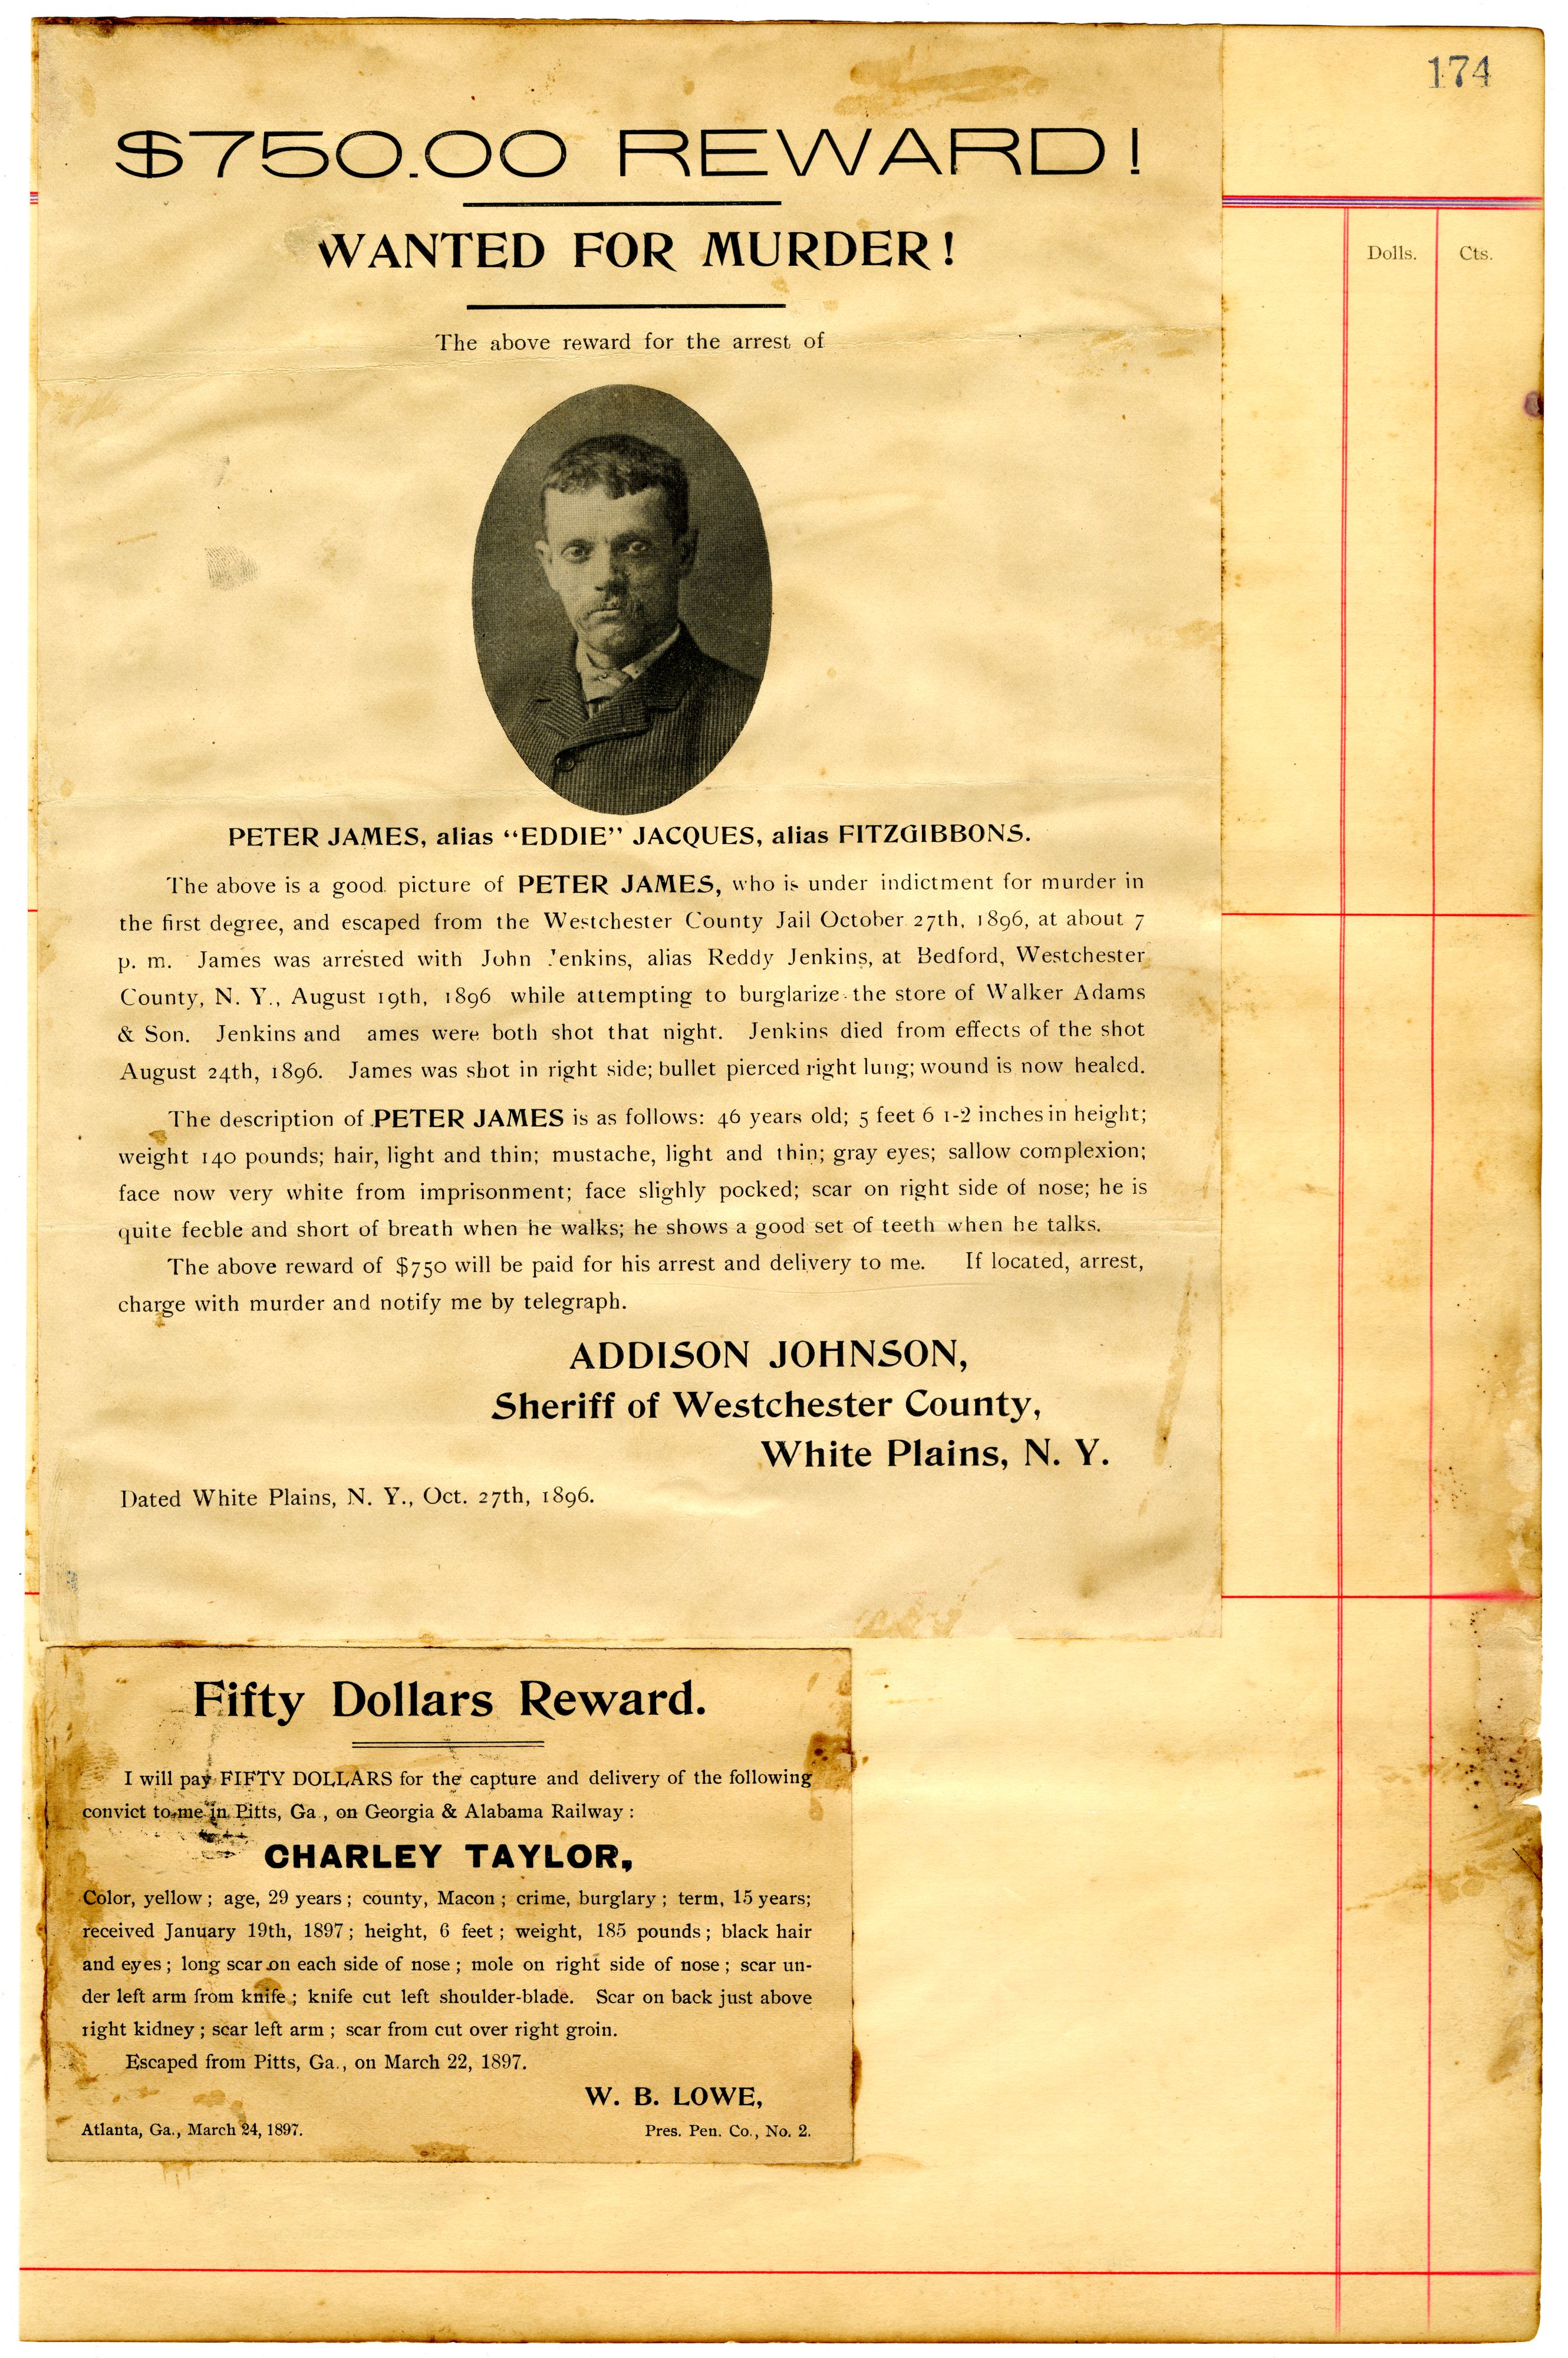 174
Dolls. Cts.
$750.00 REWARD!
WANTED FOR MURDER!
The above reward for the arrest of
PETER JAMES, alias “EDDIE” JACQUES, alias FITZGIBBONS.
The above is a good picture of PETER JAMES, who is under indictment for murder in
the first degree, and escaped from the Westchester County Jail October 27th, 1896, at about 7
p. m. James was arrested with John 'enkins, alias Reddy Jenkins, at Bedford, Westchester
County, N. Y., August 19th, 1896 while attempting to burglarize the store of Walker Adams
& Son. Jenkins and ames were both shot that night. Jenkins died from effects of the shot
August 24th, 1896. James was shot in right side; bullet pierced right lung; wound is now healed.
The description of PETER JAMES is as follows: 46 years old; 5 feet 6 1-2 inches in height;
weight 140 pounds; hair, light and thin; mustache, light and thin; gray eyes; sallow complexion;
face now very white from imprisonment; face slighly pocked; scar on right side of nose; he is
quite feeble and short of breath when he walks; he shows a good set of teeth when he talks.
The above reward of $750 will be paid for his arrest and delivery to me. If located, arrest,
charge with murder and notify me by telegraph.
ADDISON JOHNSON,
Sheriff of Westchester County,
White Plains, N. Y.
Dated White Plains, N. Y., Oct. 27th, 1896.
Fifty Dollars Reward.
I will pay FIFTY DOLLARS for the capture and delivery of the following
convict to me in Pitts, Ga., on Georgia & Alabama Railway :
CHARLEY TAYLOR,
Color, yellow ; age, 29 years ; county, Macon ; crime, burglary ; term, 15 years;
received January 19th, 1897 ; height, 6 feet ; weight, 185 pounds ; black hair
and eyes ; long scar on each side of nose ; mole on right side of nose ; scar un-
der left arm from knife ; knife cut left shoulder-blade. Scar on back just above
right kidney ; scar left arm ; scar from cut over right groin.
Escaped from Pitts, Ga., on March 22, 1897.
W. B. LOWE,
Atlanta, Ga., March 24, 1897. Pres. Pen. Co., No. 2.